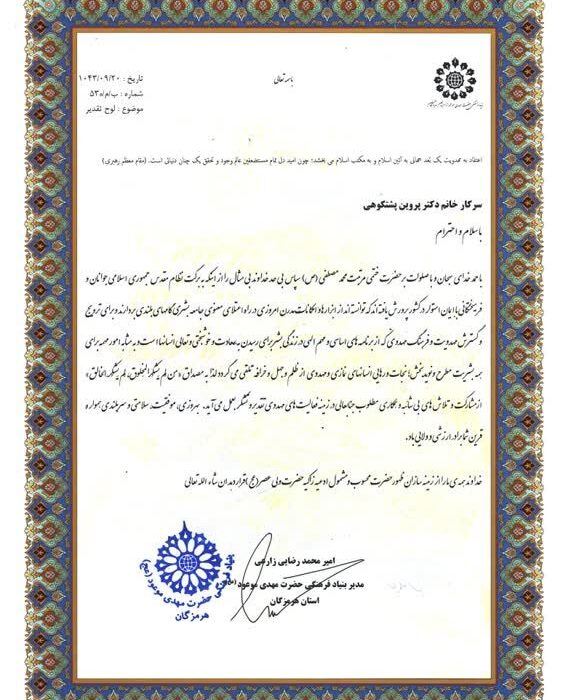 باسمه تعالی
تاریخ : ۱۰۴۳/۰۹/۲۰
شماره : ب/م/ه/۵۳
موضوع : لوح تقدیر
اعتقاد به مهدویت یک بعد جهانی به آئین اسلام و به مکتب اسلام می بخشد؛ چون امید دل تمام مستضعفین عالم وجود و تحقق یک چنان دنیائی است. (مقام معظم رهبری)
سرکار خانم دکتر پروین پشتکوهی
با سلام و احترام
با حمد خدای سبحان و با صلوات بر حضرت ختمی مرتبت محمد مصطفی (ص) سپاس بی حد خداوند بی مثال را از اینکه به برکت نظام مقدس جمهوری اسلامی جوانان و
فرهیختگانی با ایمان استوار در کشور پرورش یافته اند که توانسته اند از ابزارها و امکانات مدرن امروزی در راه اعتلای معنوی جامعه بشری گامهای بلندی بردارند و برای ترویج
و گسترش مهدویت و فرهنگ مهدوی که از برنامه های اساسی و مهم الهی در زندگی بشر برای رسیدن به سعادت و خوشبختی و تعالی انسانها است و به مثابه امور مهمه برای
همه بشریت مطرح و نوید بخش نجات و رهایی انسانهای نمازی و مهدوی از ظلم و جهل و خرافه تلقی می گردد لذا به مصداق «من لم یشکر المخلوق، لم یشکر الخالق»
از مشارکت و تلاش های بی شائبه و همکاری مطلوب جنابعالی در زمینه فعالیت های مهدوی تقدیر و تشکر بعمل می آید. بهروزی، موفقیت، سلامتی و سربلندی همواره
قرین شما برادر ارزشی و ولایی باد.
خداوند همه ی ما را از زمینه سازان ظهور حضرت محسوب و مشمول ادعیه زاکیه حضرت ولی عصر (عج) قرار بدهد ان شاء الله تعالی
امیر محمد رضایی زارعی
مدیر بنیاد فرهنگی حضرت مهدی موعود (عج)
استان هرمزگان
بنیاد فرهنگی حضرت مهدی موعود (عج)
هرمزگان